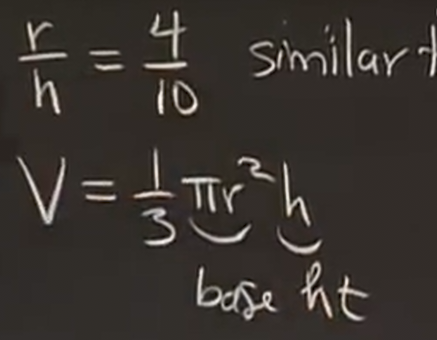 r/h = 4/10 similar
V = 1/3 πr²h
base ht